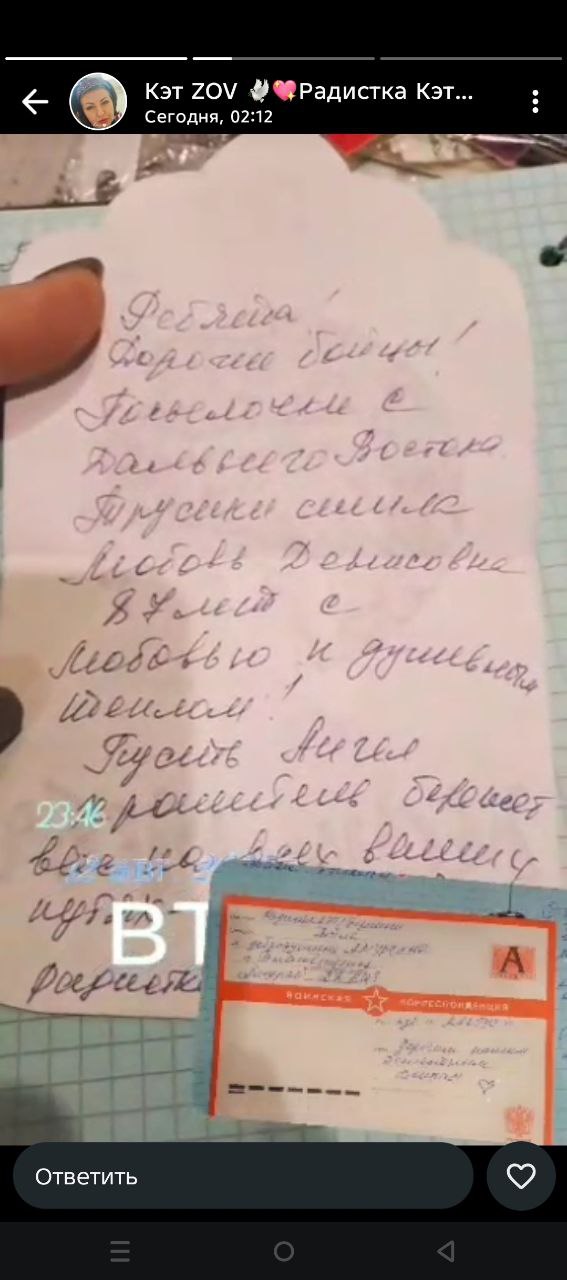 Кэт ZOV 🕊️💖Радистка Кэт...
Сегодня, 02:12
Ребята!
Дорогие бойцы!
Посылочки с
Дальнего Востока
Трусики сшила
Любовь Денисовна
87 лет с
Любовью и душевным
теплом!
Пусть Ангел
хранитель бережет
вас на всех ваших
путях
Радистка
23:46
ВТ
А
ВОИНСКАЯ КОРРЕСПОНДЕНЦИЯ
Дорогим нашим
Ответить